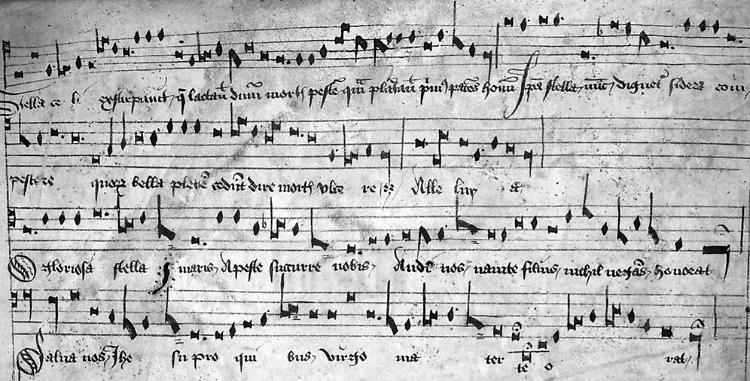 Stella ce li extirpavit q̄ lactavit dn̄m mortis pestē quā plātavit pͥmꝰ parēs hoīm Ip̄a stella nūc dignet' sidera com
pescere quorꝝ bella plebē cedūt dire mortis ulce re Alle luy a
O gloriosa stella maris A peste sucurre nobis Audi nos nam te filius nichil negās honorat
Salva nos Jhū pro qui bus virgo ma ter te o rat